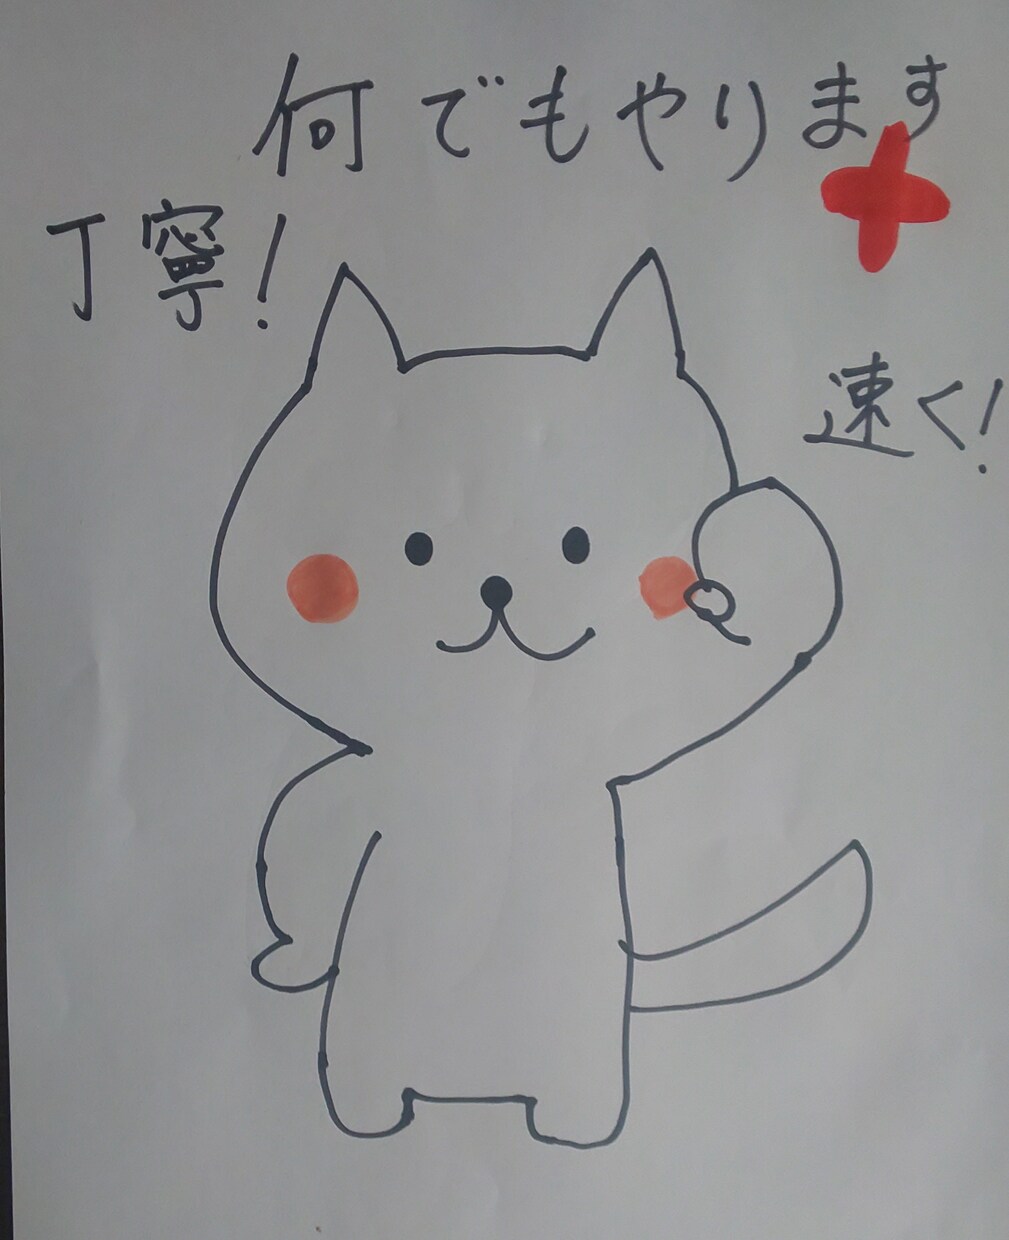 何でもやります
丁寧！
速く！